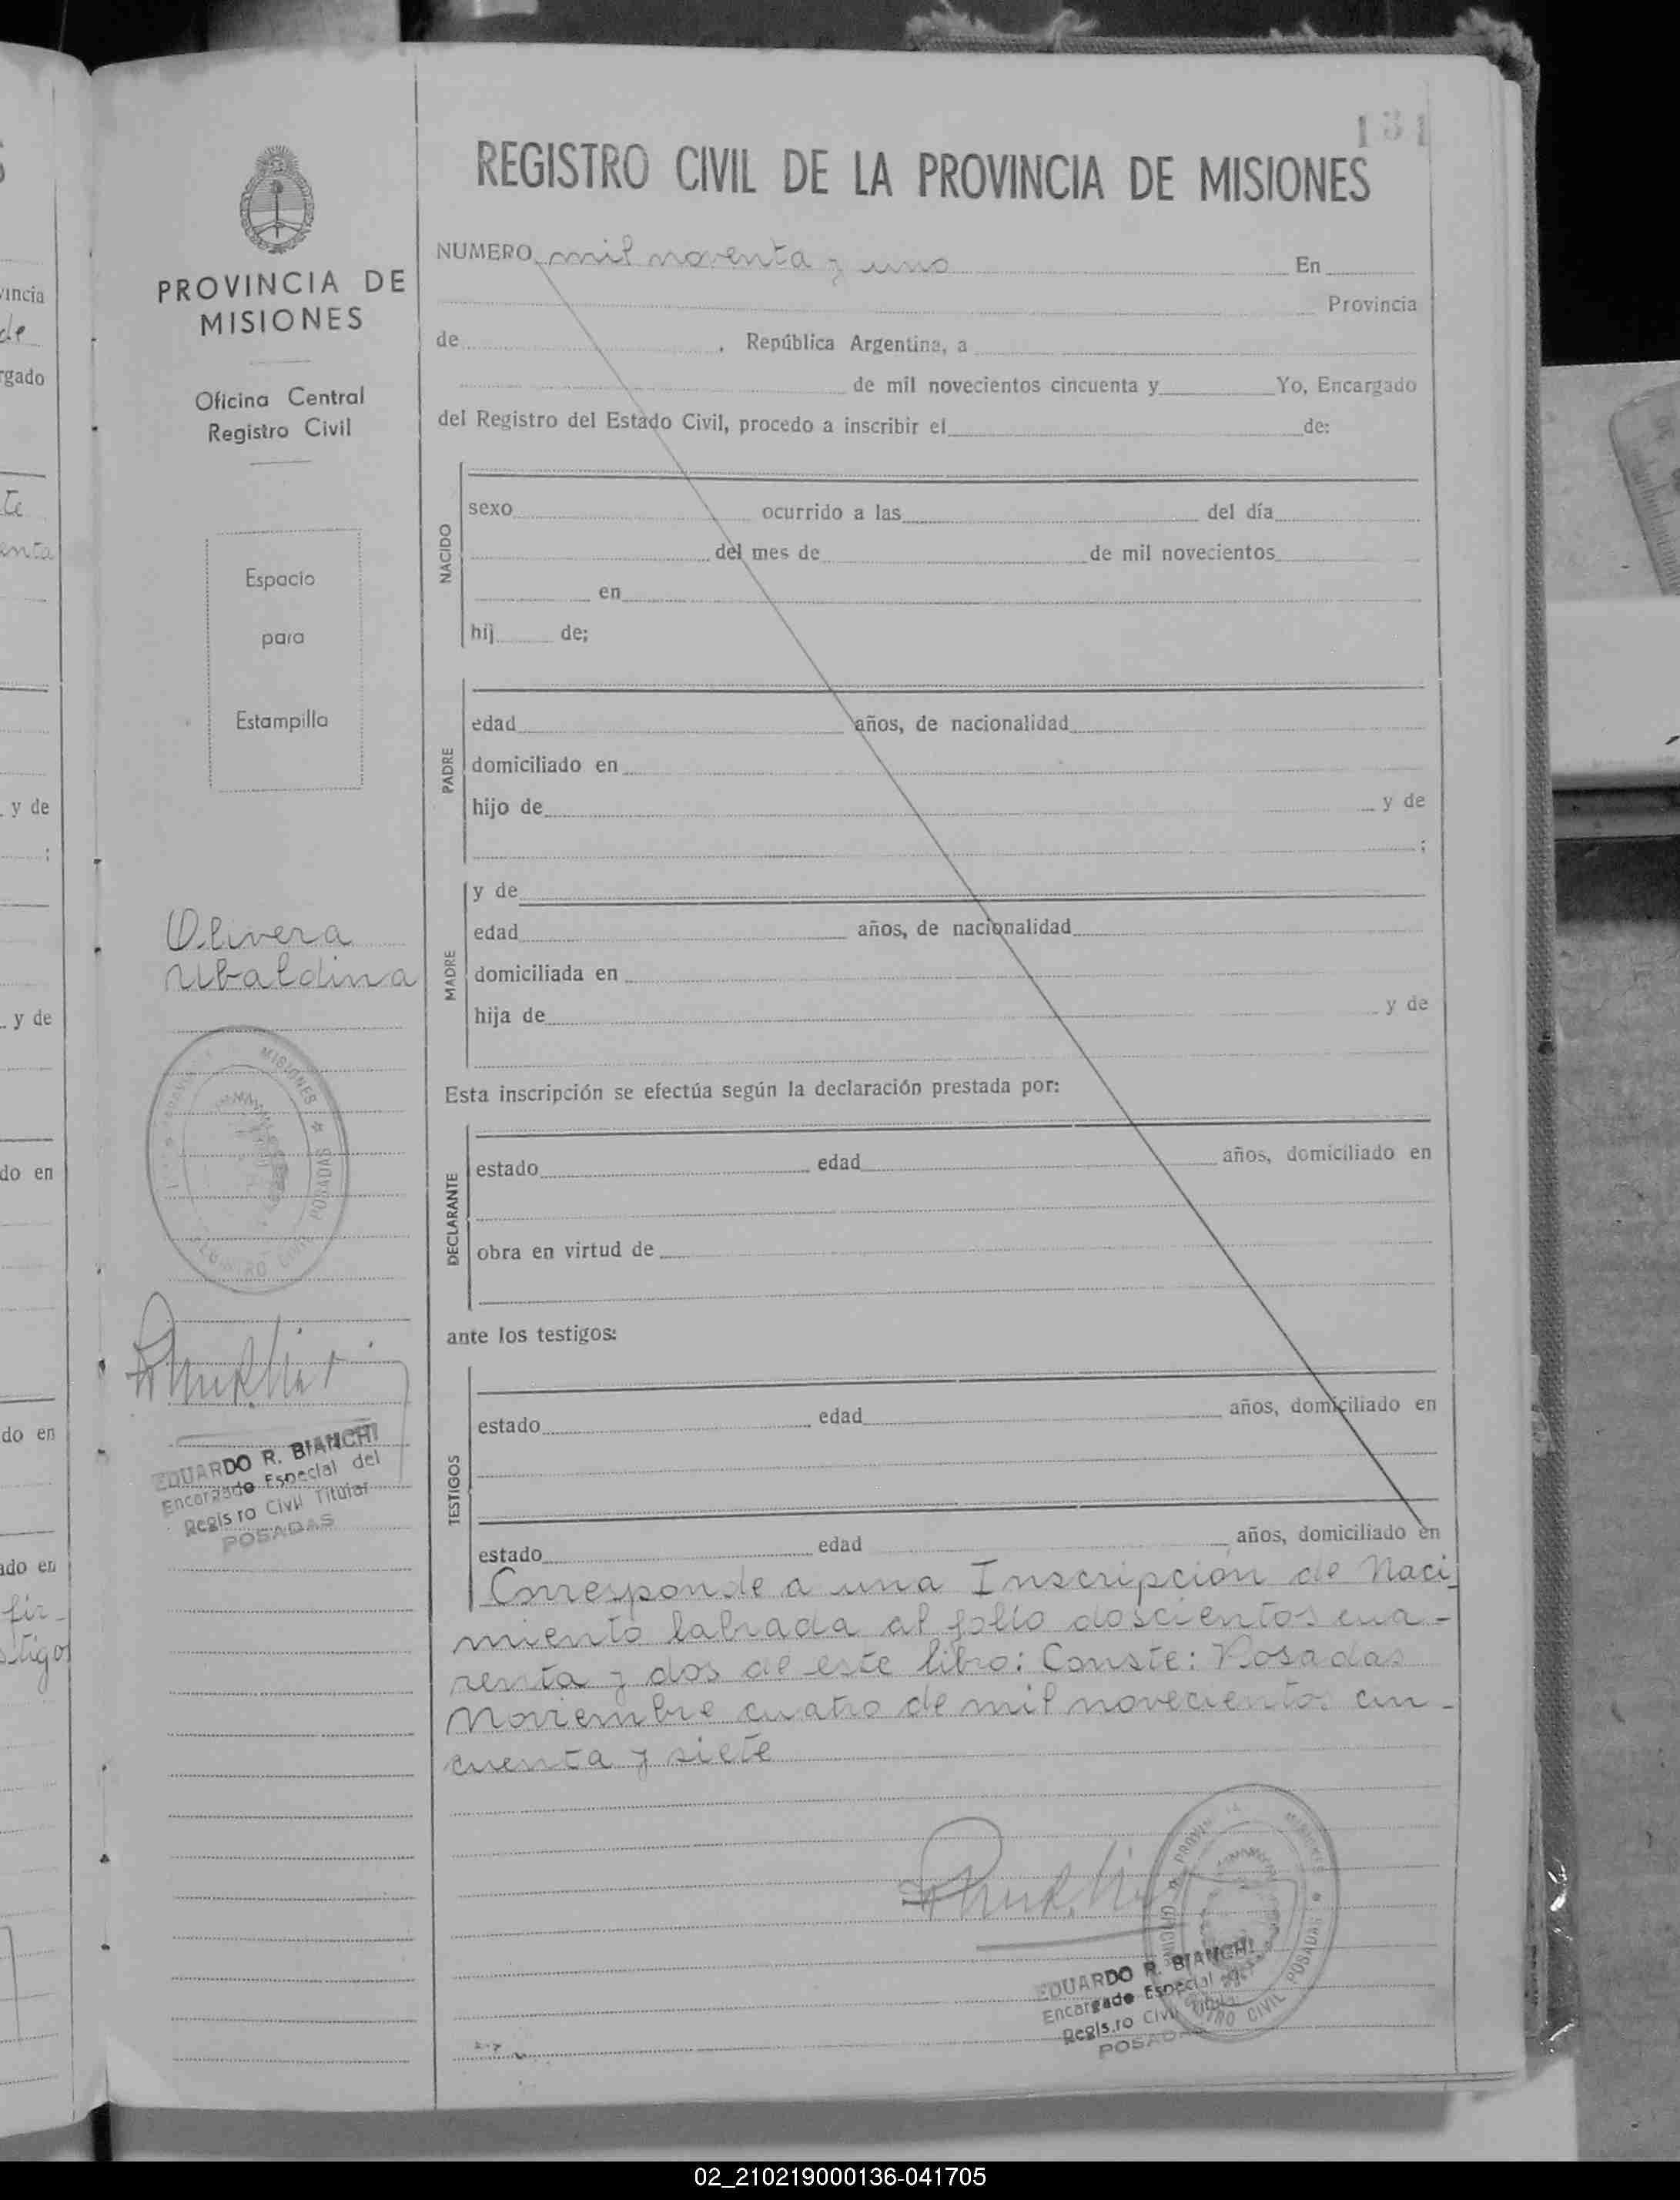 131
REGISTRO CIVIL DE LA PROVINCIA DE MISIONES
PROVINCIA DE
MISIONES
Oficina Central
Registro Civil
Espacio
para
Estampilla
Olivera
Ubaldina
MISIONES POSADAS
EDUARDO R. BIANCHI
Encargado Especial del
Regis ro Civil Titular
POSADAS
NUMERO mil noventa y uno En
Provincia
de , República Argentina, a
de mil novecientos cincuenta y Yo, Encargado
del Registro del Estado Civil, procedo a inscribir el de:
NACIDO
sexo ocurrido a las del día
del mes de de mil novecientos
en
hij de;
PADRE
edad años, de nacionalidad
domiciliado en
hijo de y de
;
MADRE
y de
edad años, de nacionalidad
domiciliada en
hija de y de
Esta inscripción se efectúa según la declaración prestada por:
DECLARANTE
estado edad años, domiciliado en
obra en virtud de
ante los testigos:
TESTIGOS
estado edad años, domiciliado en
estado edad años, domiciliado en
Corresponde a una Inscripción de Naci
miento labrada al folio doscientos cua-
renta y dos de este libro: Conste: Posadas
Noviembre cuatro de mil novecientos cin-
cuenta y siete
EDUARDO R. BIANCHI
Encargado Especial
Regis.ro Civil Titular
POSADAS
CIVIL POSADAS
vincia
de
rgado
te
enta
y de
;
y de
do en
do en
ado en
fir-
stigos
02_210219000136-041705